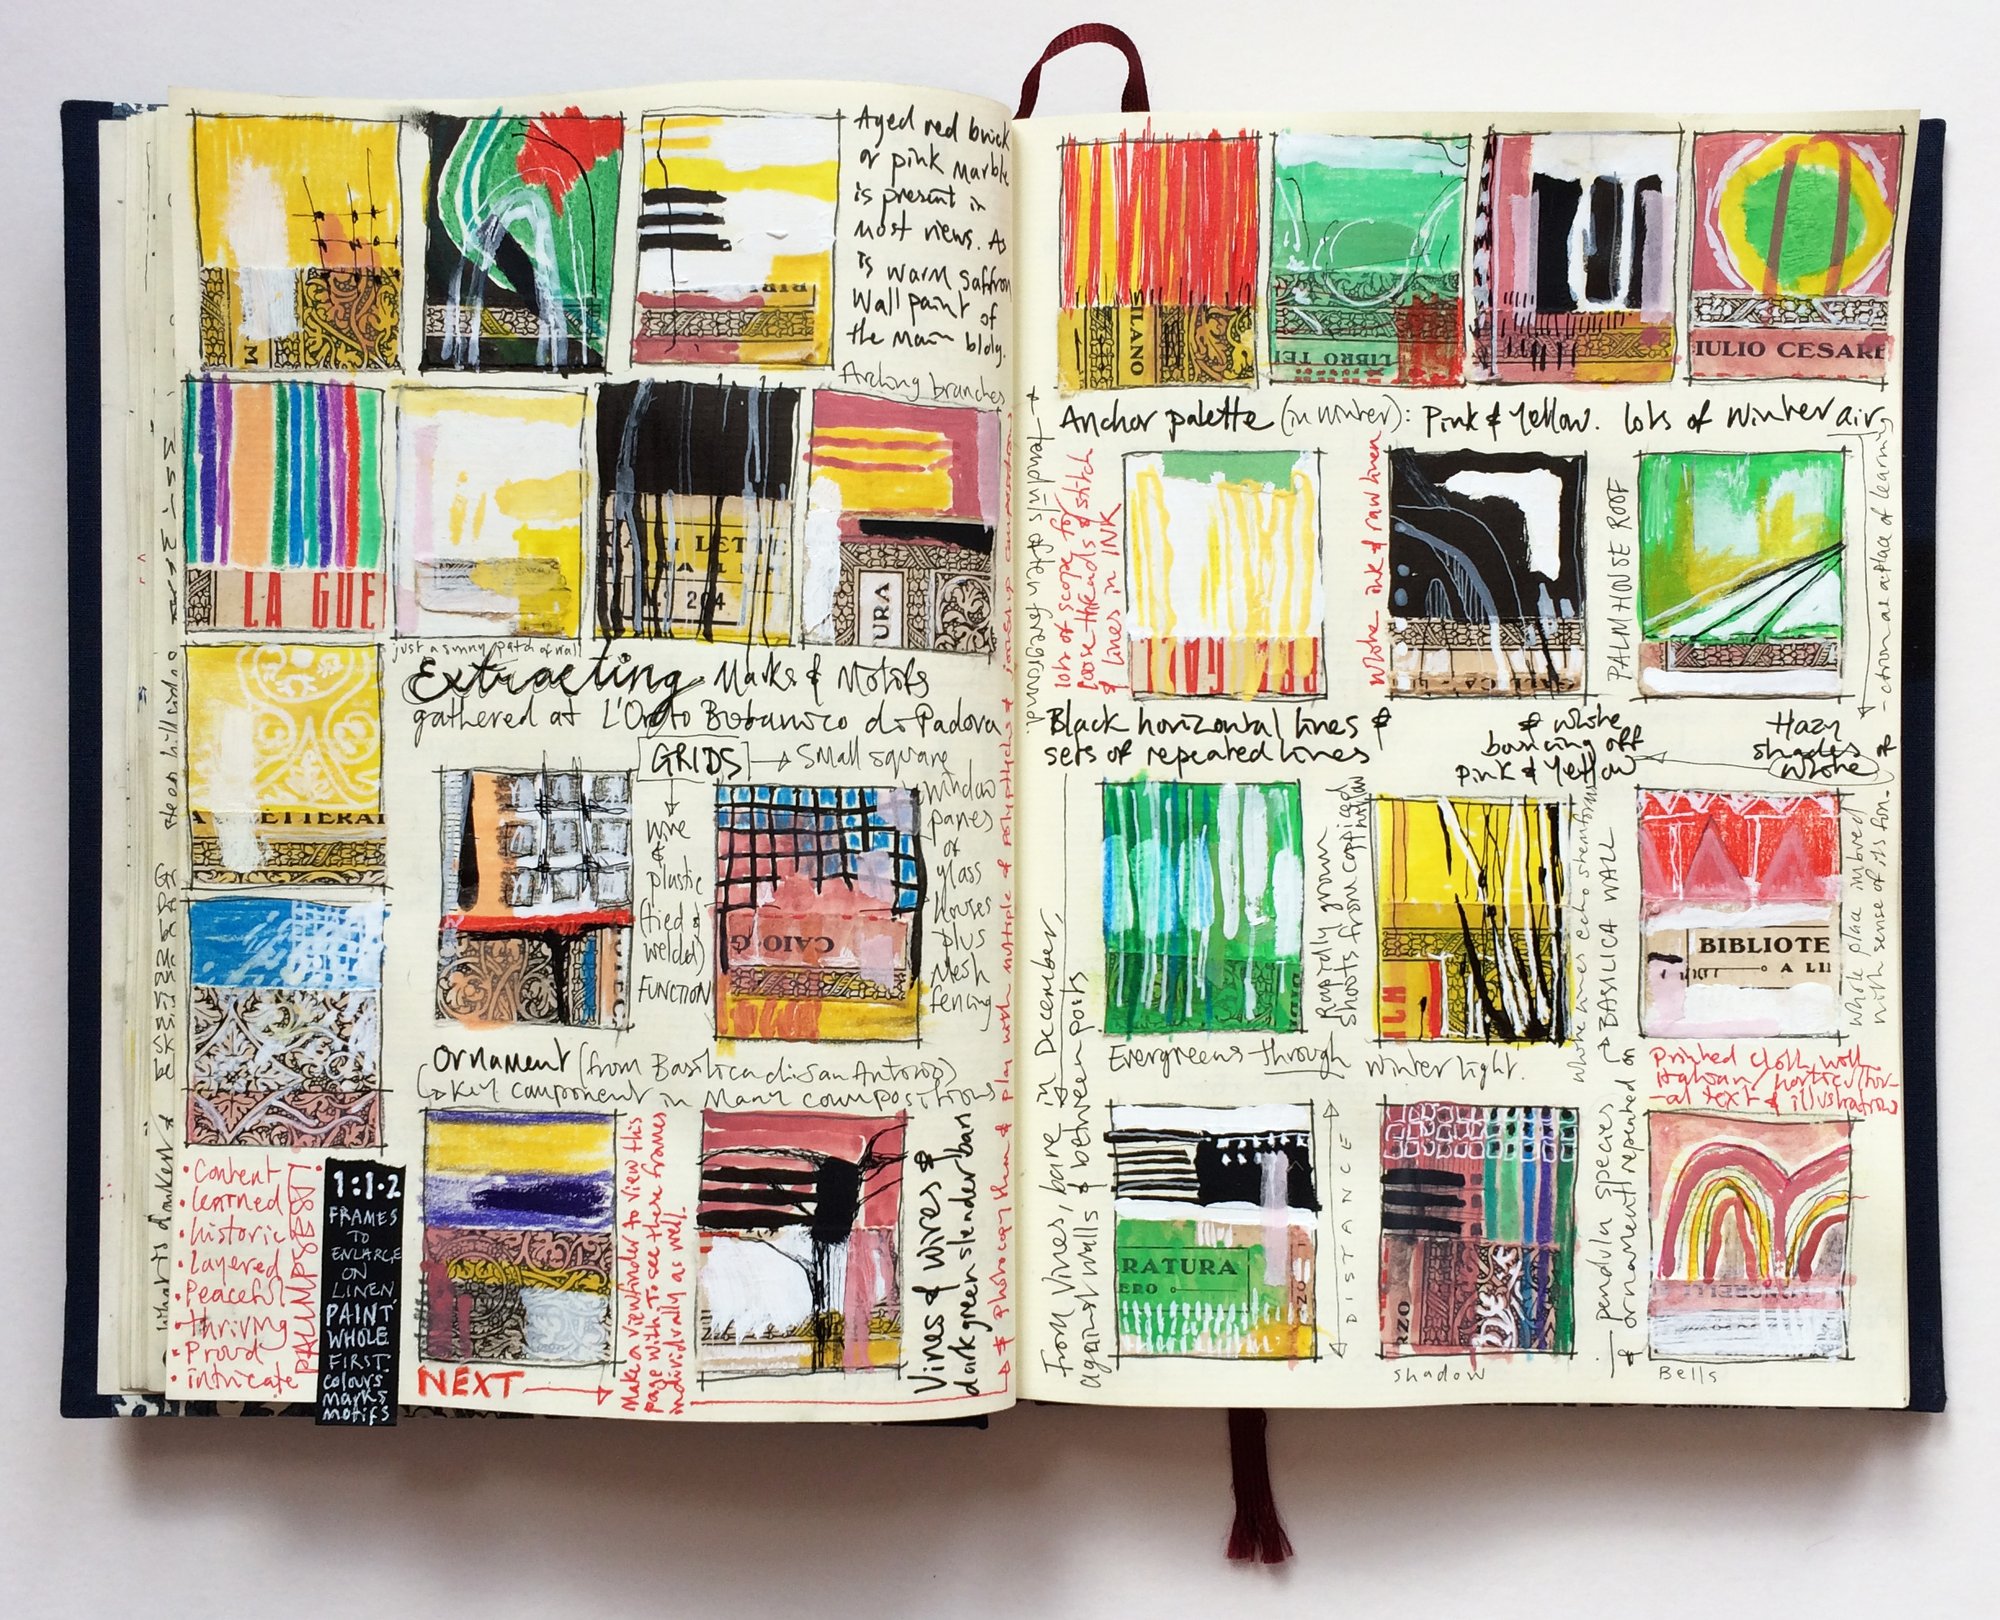 Aged red brick
or pink marble
is present in
most views. As
is warm saffron
wall paint of
the main bldg.
Arching branches
M
LA GUE
LETTE
204
URA
just a sunny patch of wall
Extracting Marks & Motifs
gathered at L'Orto Botanico di Padova
GRIDS → Small square
window
panes
of
glass
houses
plus
mesh
fencing
wire
&
plastic
(tied &
welded)
FUNCTION
LETTERAI
CAIO G
Ornament (from Basilica di San Antonio)
↳ Key component in many compositions
• Content
• learned
• historic
• layered
• Peaceful
• thriving
• Proud
• intricate
PALIMPSEST
1:1.2
FRAMES
TO
ENLARGE
ON
LINEN.
PAINT
WHOLE
FIRST.
colours
marks
motifs
NEXT →
Make a viewfinder to view this
page with to see these frames
individually as well.
Vines & wires &
dark green slender bars
* photocopy them & play with multiple
MILANO
LIBRO TE
IULIO CESARE
Anchor palette (in winter): Pink & Yellow. lots of winter air
tendrils often foreground.
lots of scope for
loose threads & stitch
& lines in INK
white ink & raw linen
PALM HOUSE ROOF
atrium as a place of learning
Black horizontal lines &
sets of repeated lines
& white
bouncing off
pink & yellow
Hazy
shades of
white
From Vines, bare in December,
against walls & between posts
Rapidly grown
shoots from coppiced
willow
white lines echo stem forms
BASILICA WALL
BIBLIOTE
A LI
whole place imbued
with sense of its fon-
Evergreens through
winter light.
Printed cloth with
Italian / horticultur-
-al text & illustration
RATURA
ERO
RZO
DISTANCE
pendula species
& ornament repeated on
shadow
Bells